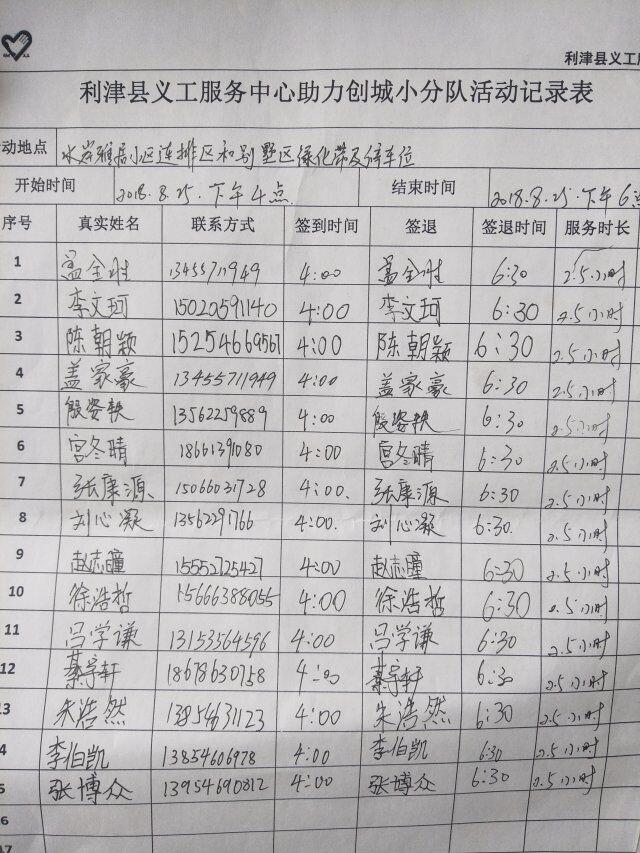 利津县义工
利津县义工服务中心助力创城小分队活动记录表
动地点 水岸雅居小区连排区和别墅区绿化带及停车位
开始时间 2018.8.25.下午4点. 结束时间 2018.8.25.下午6
序号 真实姓名 联系方式 签到时间 签退 签退时间 服务时长
1 盖全胜 13455711949 4:00 盖全胜 6:30 2.5小时
2 李文珂 15020591140 4:00 李文珂 6:30 2.5小时
3 陈朝颖 15254669567 4:00 陈朝颖 6:30 2.5小时
4 盖家豪 13455711949 4:00 盖家豪 6:30 2.5小时
5 殷姿轶 13562259889 4:00 殷姿轶 6:30 2.5小时
6 宫冬晴 18661391080 4:00 宫冬晴 6:30 2.5小时
7 张康源 15066031728 4:00. 张康源 6:30 2.5小时
8 刘心凝 13562291766 4:00. 刘心凝 6:30. 2.5小时
9 赵志瞳 15552725427 4:00 赵志瞳 6:30 2.5小时
10 徐浩哲 15666388055 4:00 徐浩哲 6:30 2.5小时
11 吕学谦 13153564596 4:00 吕学谦 6:30 2.5小时
12 綦宇轩 18678630758 4:00 綦宇轩 6:30 2.5小时
3 朱浩然 13854631123 4:00 朱浩然 6:30 2.5小时
4 李伯凯 13854606978 4:00 李伯凯 6:30 2.5小时
5 张博众 13954690812 4:00 张博众 6:30 2.5小时
6
17